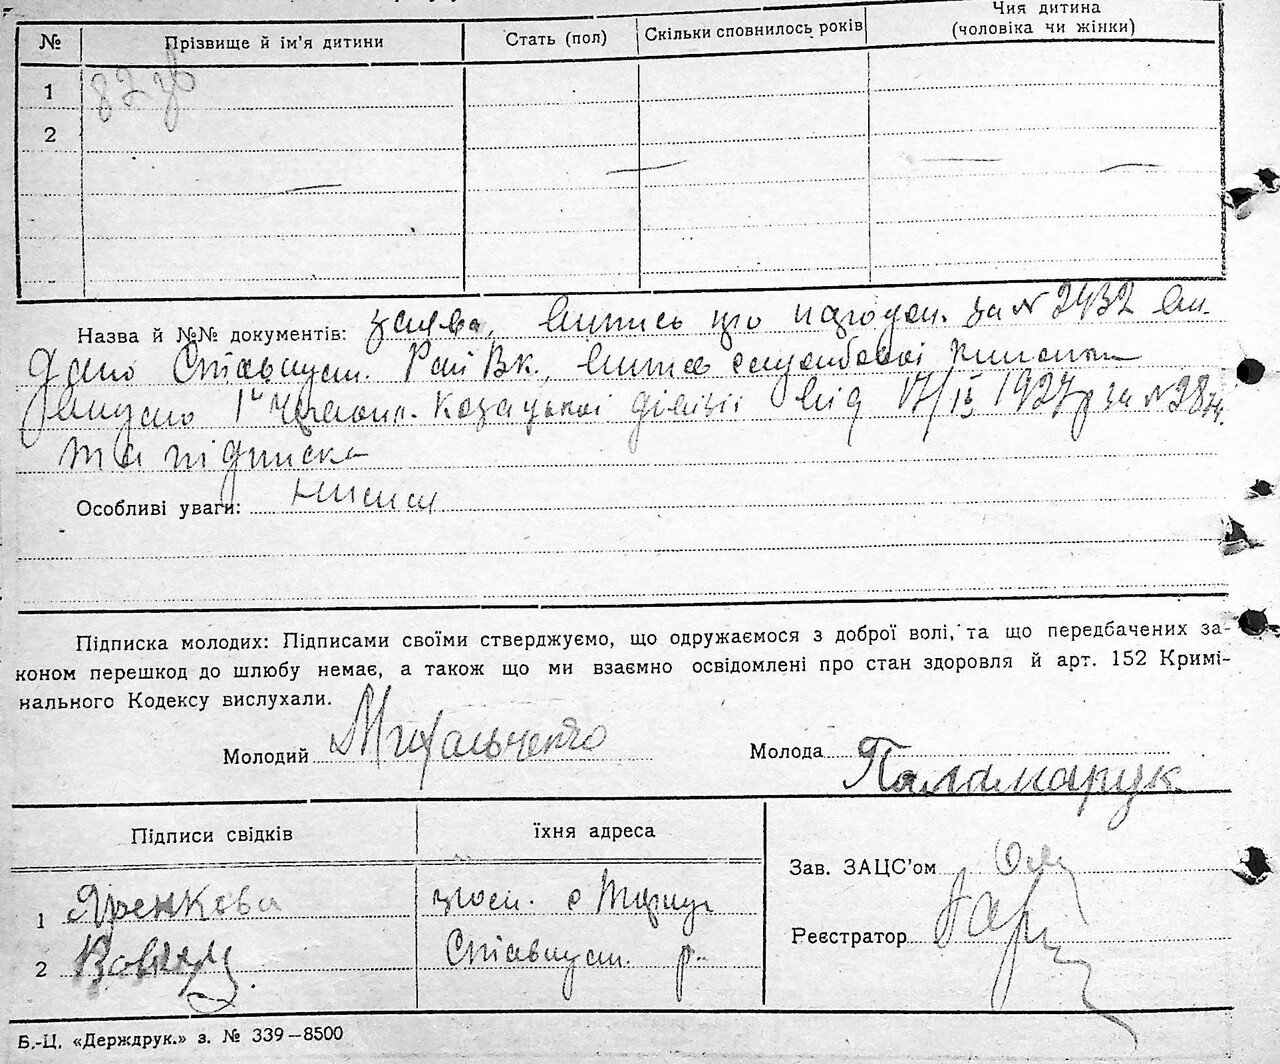 № Прізвище й ім'я дитини Стать (пол) Скільки сповнилось років Чия дитина (чоловіка чи жінки)
1
2
Назва й №№ документів: заява, випись про народж. за № 2432 ви-
дано Ставищан. Рай Вк., випис службової книжки
видано 1ї Червон. Козацької дівізії від 17/IX 1927 р за № 2874.
та підписка
Особливі уваги: немає
Підписка молодих: Підписами своїми стверджуємо, що одружаємося з доброї волі, та що передбачених за-
коном перешкод до шлюбу немає, а також що ми взаємно освідомлені про стан здоровля й арт. 152 Кримі-
нального Кодексу вислухали.
Молодий Михальченко Молода Паламарук
Підписи свідків їхня адреса
Зав. ЗАЦС'ом
1 Яренкова
Реєстратор
2 р.
Б.-Ц. «Держдрук.» з. № 339—8500